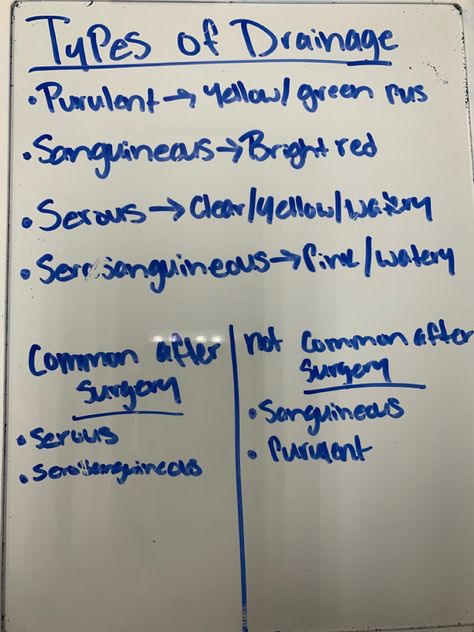 Types of Drainage
• Purulent → Yellow/green pus
• Sanguineous → Bright red
• Serous → Clear/yellow/watery
• Serosanguineous → Pink/watery
Common after
surgery
• Serous
• Serosanguineous
not common after
surgery
• Sanguineous
• Purulent